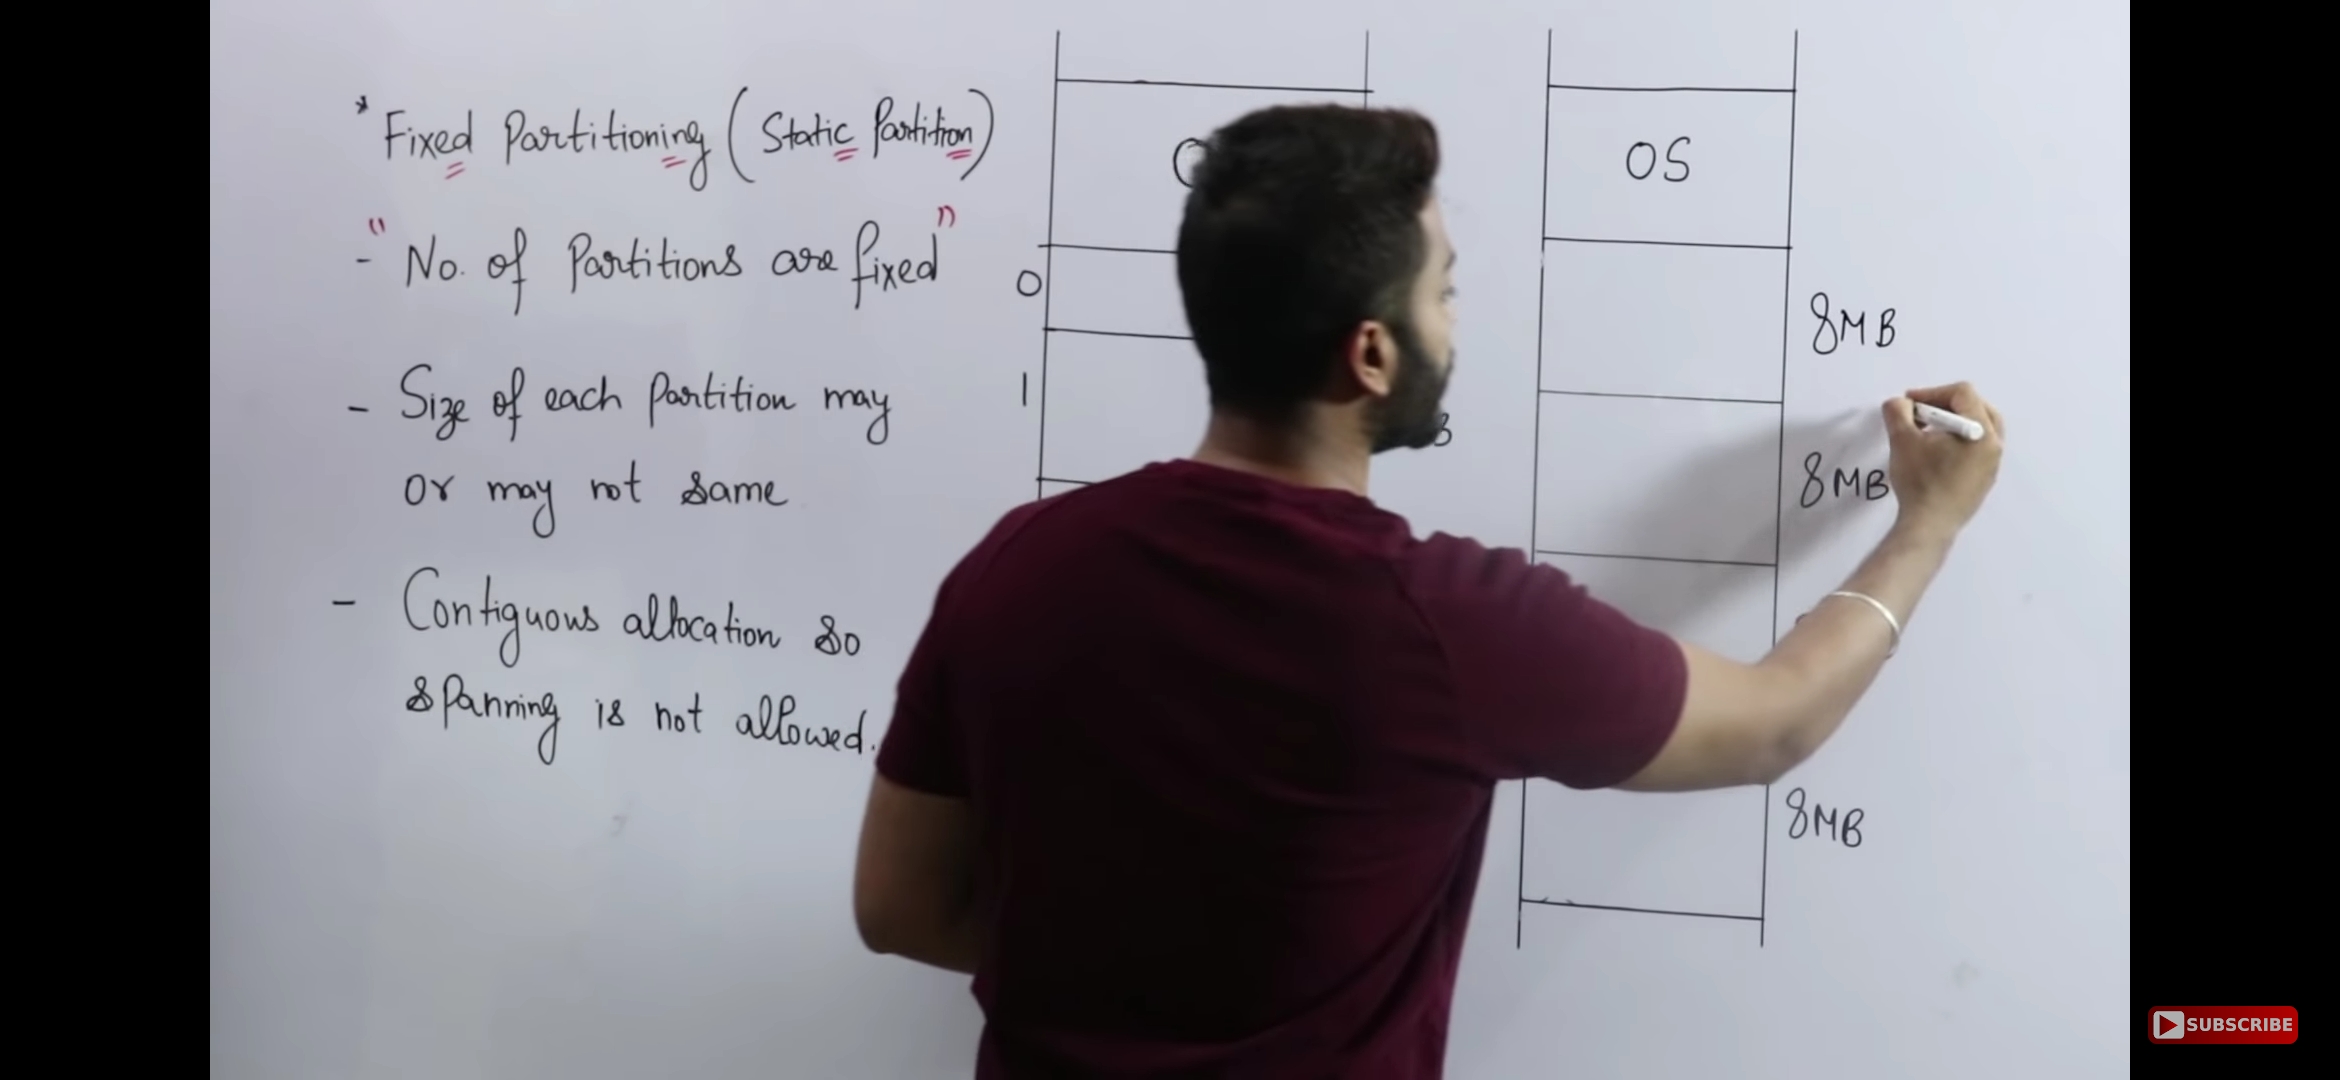 * Fixed Partitioning (Static Partition)
- "No. of Partitions are fixed"
- Size of each Partition may
or may not same
- Contiguous allocation so
spanning is not allowed.
0
1
OS
8MB
8MB
8MB
SUBSCRIBE